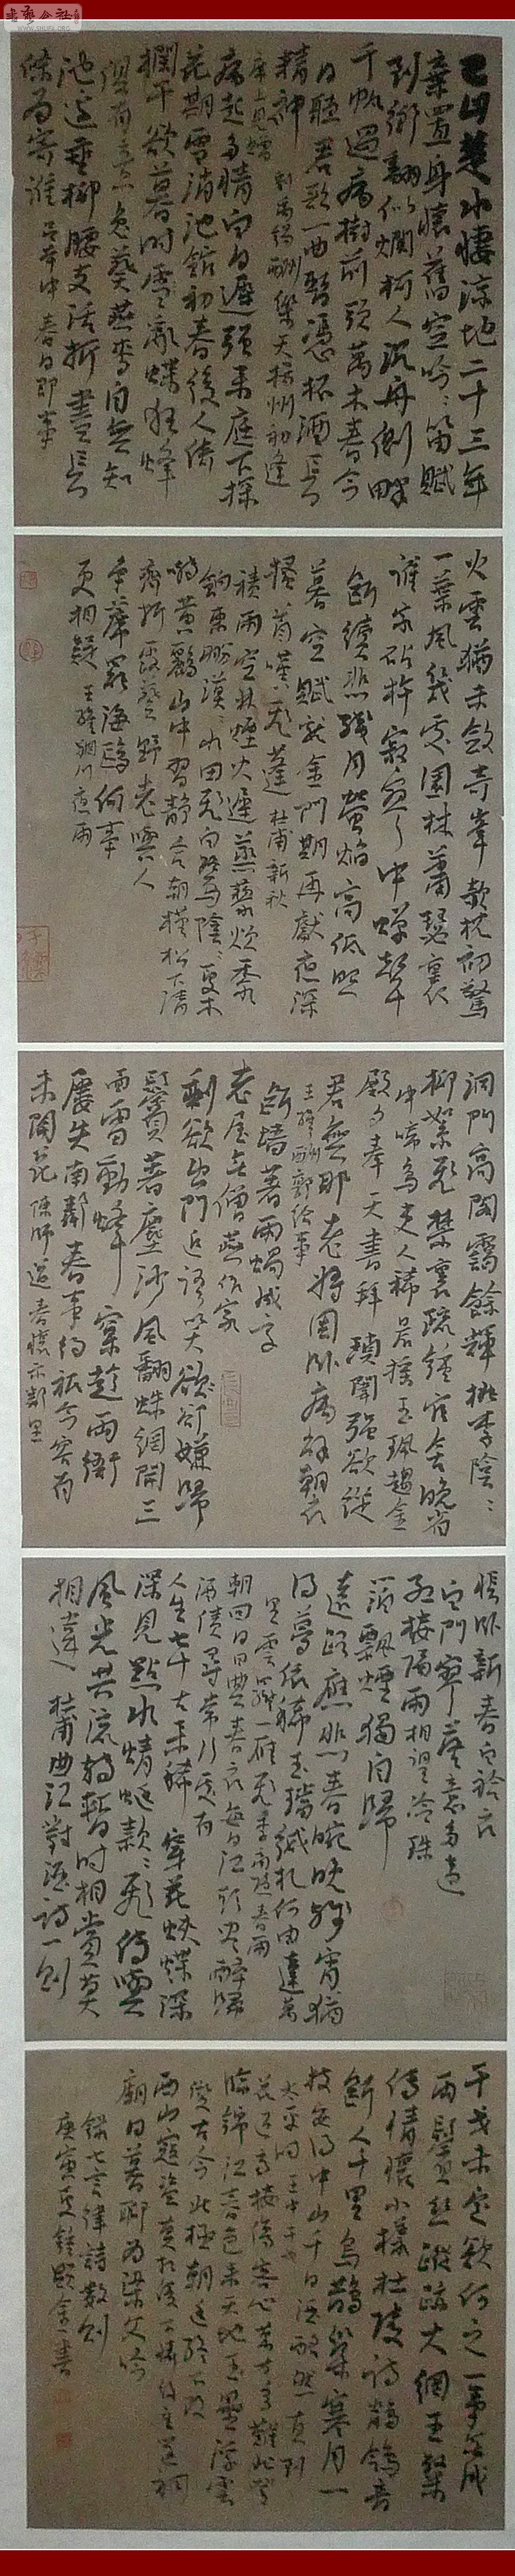 書藝公社
巴山楚水悽涼地二十三年
棄置身懷舊空吟吟笛賦
到鄉翻似爛柯人沉舟側畔
千帆過病樹前頭萬木春今
日聽君歌一曲暫憑杯酒長
精神
劉禹錫酬樂天揚州初逢
席上見贈
病起多情白日遲強來庭下探
花期雪消池館初春後人倚
欄干欲暮時亂蝶狂蜂
俱有意兔葵燕麥自無知
池邊垂柳腰支活折盡長
條為寄誰
春日即事
火雲猶未斂奇峯欹枕初驚
一葉風幾處園林蕭瑟裏
誰家砧杵寂寥中蟬聲
斷續悲殘月螢焰高低照
暮空賦就金門期再獻夜深
搔首嘆飛蓬 杜甫新秋
積雨空林煙火遲蒸藜炊黍
餉東菑漠漠水田飛白鷺陰陰夏木
囀黃鸝山中習靜朝槿松下清
齋折露葵野老與人
爭席罷海鷗何事
更相疑 王維輞川
洞門高閣靄餘輝桃李陰陰
柳絮飛禁裏疏鐘官舍晚省
中啼鳥吏人稀晨搖玉珮趨金
殿夕奉天書拜瑣闈強欲從
君無那老將因臥病解朝衣
王維酬郭給事
斷墻著雨蝸成字
老屋無僧燕作家
剩欲出門追語笑欲卻嫌歸
鬢著塵沙風翻蛛網開三
面雷動蜂窠趁兩衙
屢失南鄰春事約祗今容有
未開花 陳師道春懷示鄰里
悵臥新春白袷衣
白門寥落意多違
紅樓隔雨相望冷珠
箔飄燈獨自歸
遠路應悲春晼晚殘宵猶
得夢依稀玉璫緘札何由達萬
里雲羅一雁飛 李商隱春雨
朝回日日典春衣每日江頭盡醉歸
酒債尋常行處有
人生七十古來稀穿花蛺蝶深
深見點水蜻蜓款款飛傳與
風光共流轉暫時相賞莫
相違 杜甫曲江對酒詩一則
干戈未定欲何之一事無成
兩鬢絲蹤跡大綱王粲
傳情懷小樣杜陵詩鶺鴒音
斷人千里烏鵲巢寒月一
枝安得中山千日酒酩然直到
太平時 王中干戈
花近高樓傷客心萬方多難此登
臨錦江春色來天地玉壘浮雲
變古今北極朝廷終不改
西山寇盜莫相侵可憐後主還祠
廟日暮聊為梁父吟
錄七言律詩數則
庚寅夏